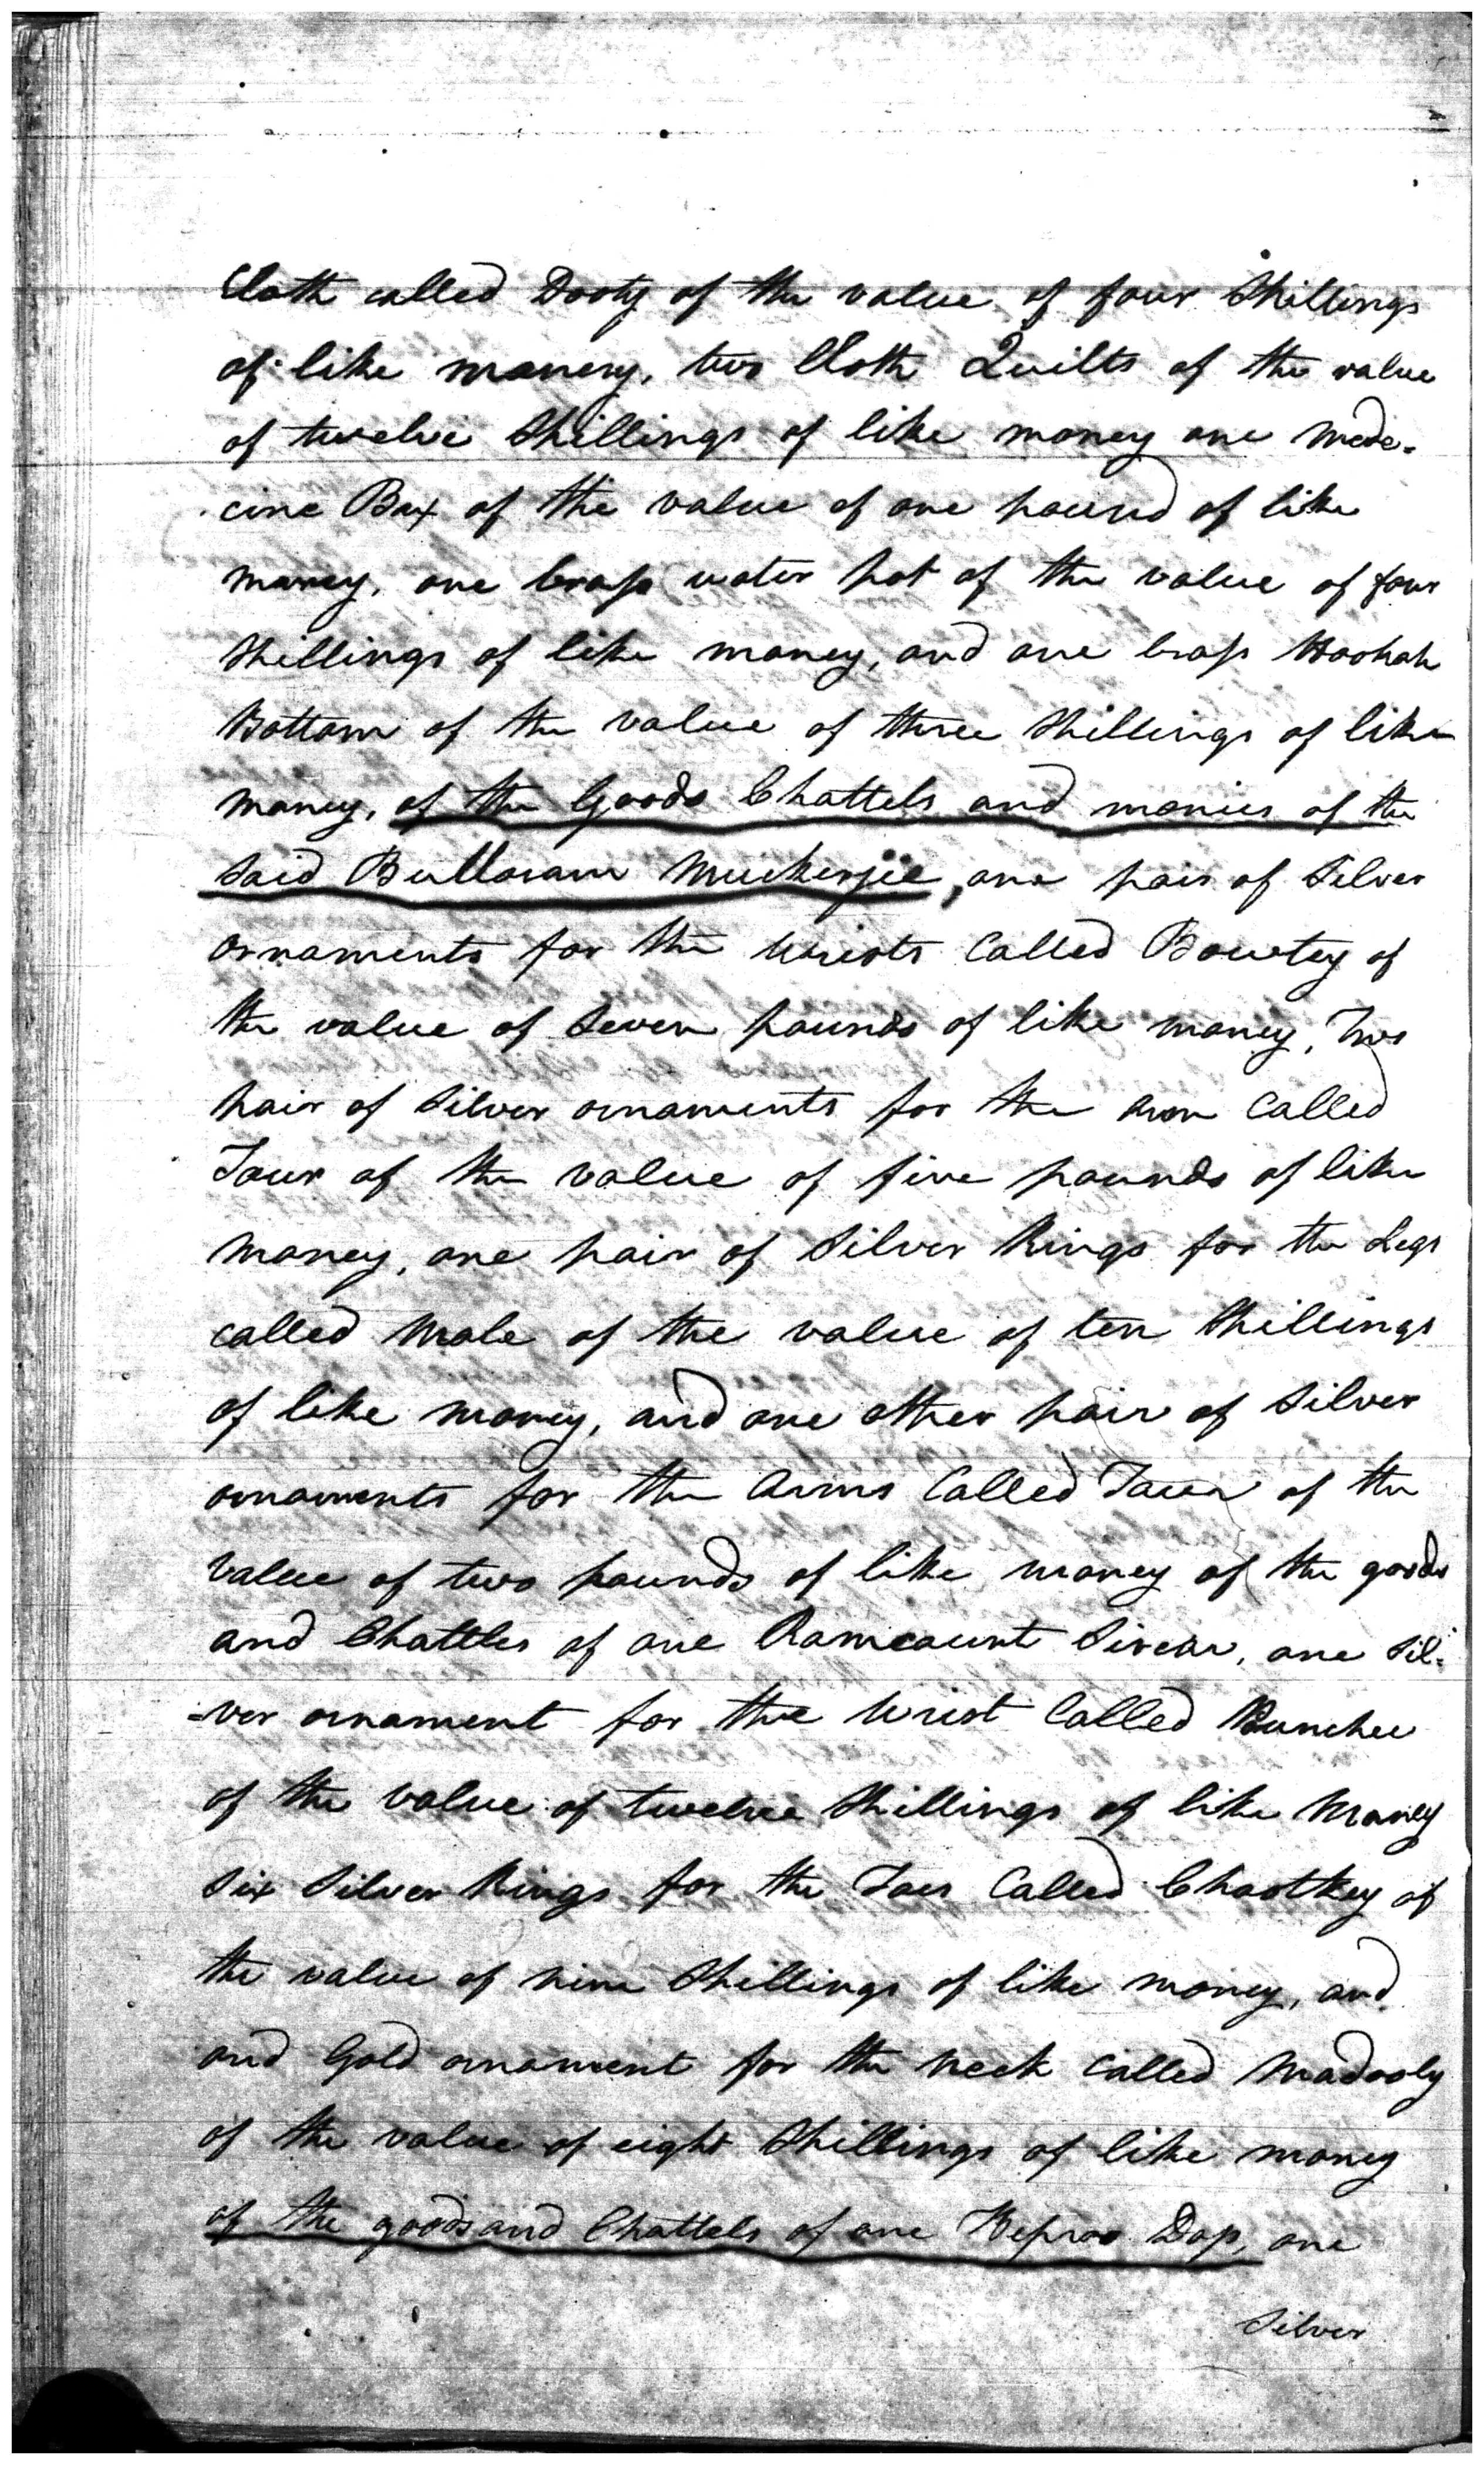 Cloth called Dooty of the value of four Shillings
of like money, two Cloth Quilts of the value
of twelve Shillings of like money one Mede-
cine Box of the value of one pound of like
money, one brass water pot of the value of four
Shillings of like money, and one brass Hookah
Bottom of the value of three Shillings of like
money, of the Goods Chattels and monies of the
Said Bulloram Muckerjee, one pair of Silver
ornaments for the wrists Called Bowtey of
the value of Seven pounds of like money, Two
pair of Silver ornaments for the arm Called
Taur of the value of five pounds of like
money, one pair of Silver Rings for the Legs
called Male of the value of ten Shillings
of like money, and one other pair of Silver
ornaments for the Arms Called of the
value of two pounds of like money of the goods
and Chattles of one Ramcaunt Sircar, one Sil-
-ver ornament for the wrist Called
of the value of twelve Shillings of like Money
Six Silver Rings for the Toes Called Chootkey of
the value of nine Shillings of like money, and
and Gold ornament for the neck Called Madooly
of the value of eight Shillings of like money
of the goods and Chattels of one Doss, one
Silver